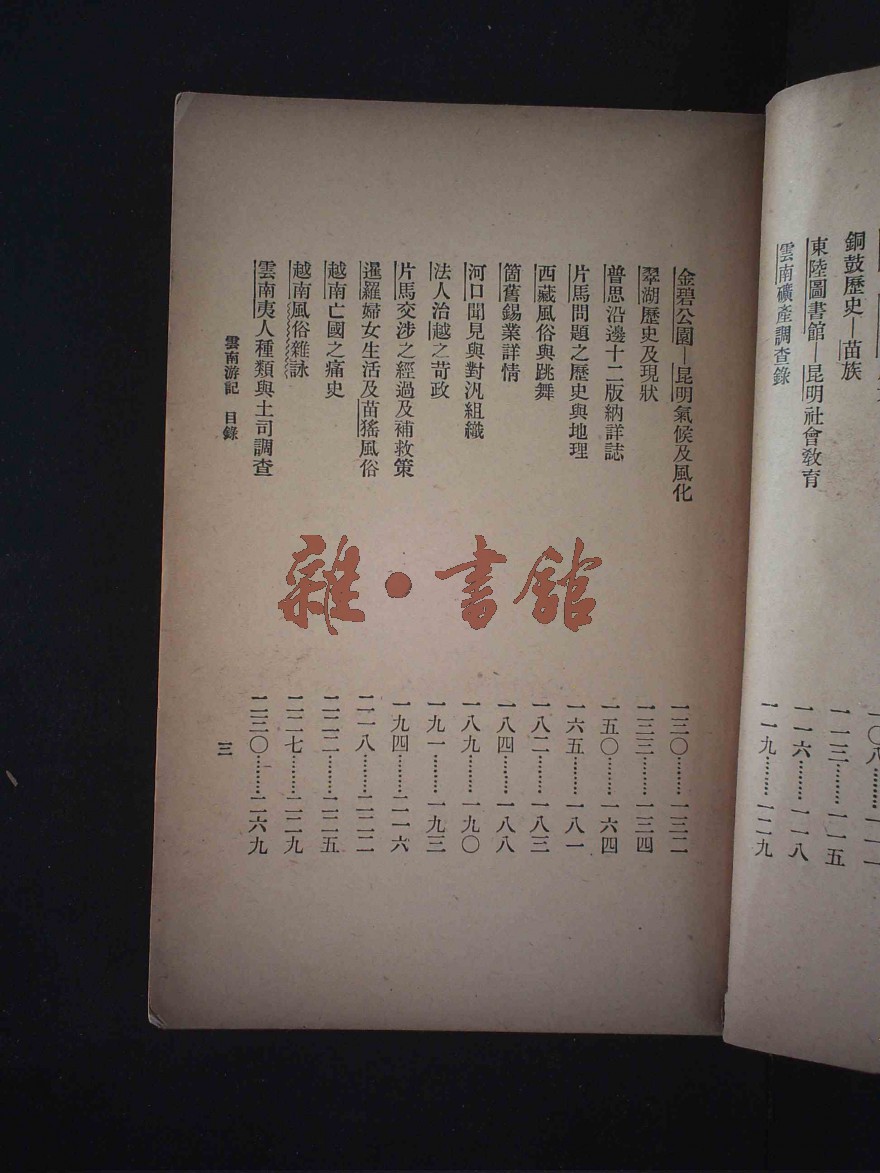 銅鼓歷史—苗族 一一三………一一五
東陸圖書館—昆明社會教育 一一六………一一八
雲南礦產調查錄 一一九………一二九
金碧公園—昆明氣候及風化 一三〇………一三二
翠湖歷史及現狀 一三三………一三四
普思沿邊十二版納詳誌 一五〇………一六四
片馬問題之歷史與地理 一六五………一八一
西藏風俗與跳舞 一八二………一八三
箇舊錫業詳情 一八四………一八八
河口聞見與對汛組織 一八九………一九〇
法人治越之苛政 一九一………一九三
片馬交涉之經過及補救策 一九四………二一六
暹羅婦女生活及苗猺風俗 二一八………二二二
越南亡國之痛史 二二二………二二五
越南風俗雜詠 二二七………二二九
雲南夷人種類與土司調查 二三〇………二六九
雲南游記 目錄 三
雜·書館